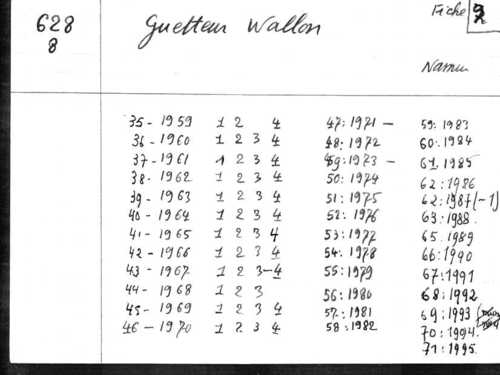 628
8
Guetteur Wallon
Fiche
Namur
35 - 1959 1 2 4 47: 1971 - 59: 1983
36 - 1960 1 2 3 4 48: 1972 60: 1984
37 - 1961 1 2 3 4 49: 1973 - 61: 1985
38 - 1962 1 2 3 4 50: 1974 62: 1986
39 - 1963 1 2 3 4 51: 1975 62: 1987 (-1)
40 - 1964 1 2 3 4 52: 1976 63: 1988
41 - 1965 1 2 3 4 53: 1977 65: 1989
42 - 1966 1 2 3 4 54: 1978 66: 1990
43 - 1967 1 2 3-4 55: 1979 67: 1991
44 - 1968 1 2 3 56: 1980 68: 1992
45 - 1969 1 2 3 4 57: 1981 69: 1993
46 - 1970 1 2 3 4 58: 1982 70: 1994
71: 1995